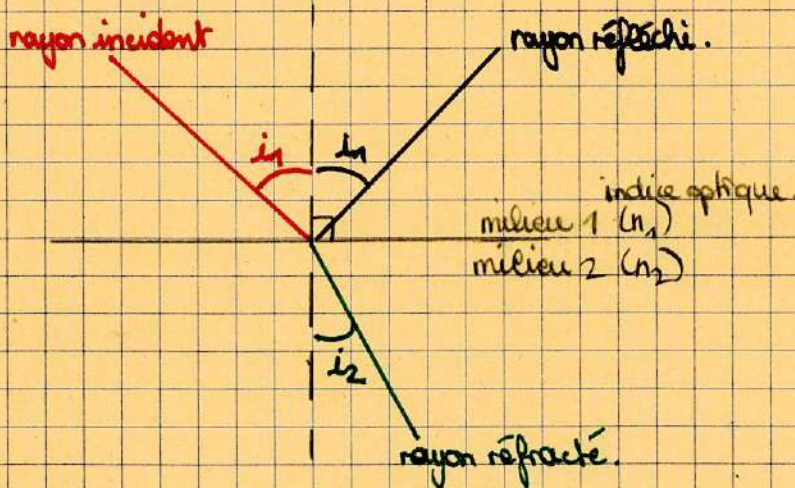 rayon incident
rayon réfléchi.
i1 i1
indice optique.
milieu 1 (n1)
milieu 2 (n2)
i2
rayon réfracté.